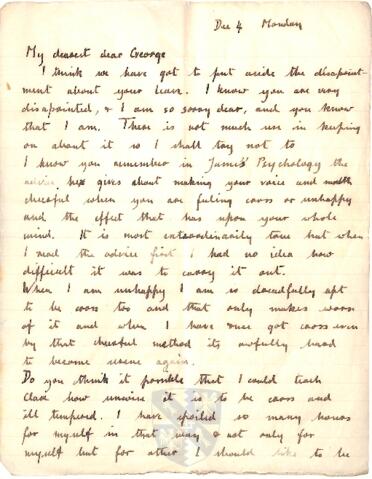 Dec 4 Monday
My dearest dear George
I think we have got to put aside the disapoint-
ment about your leave. I know you are very
disapointed, & I am so sorry dear, and you know
that I am. There is not much use in keeping
on about it so I shall try not to
I know you remember in James' Psychology the
advice he gives about making your voice and mouth
cheerful when you are feeling cross or unhappy
and the effect that has upon your whole
mind. It is most extraordinarily true but when
I read the advice first I had no idea how
difficult it was to carry it out.
When I am unhappy I am so dreadfully apt
to be cross too and that only makes worse
of it and when I have once got cross even
by that cheerful method its awfully hard
to become serene again.
Do you think it possible that I could teach
Clare how unwise it is to be cross and
ill tempered. I have spoiled so many hours
for myself in that way & not only for
myself but for other I should like to be